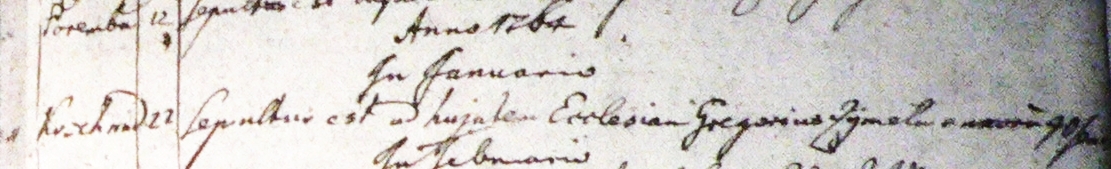 Poremba 12 Sepultus est
Anno 1764
In Januario
22 Sepultus est ad hujatem Ecclesiam Gregorius annorum 90
In Februario